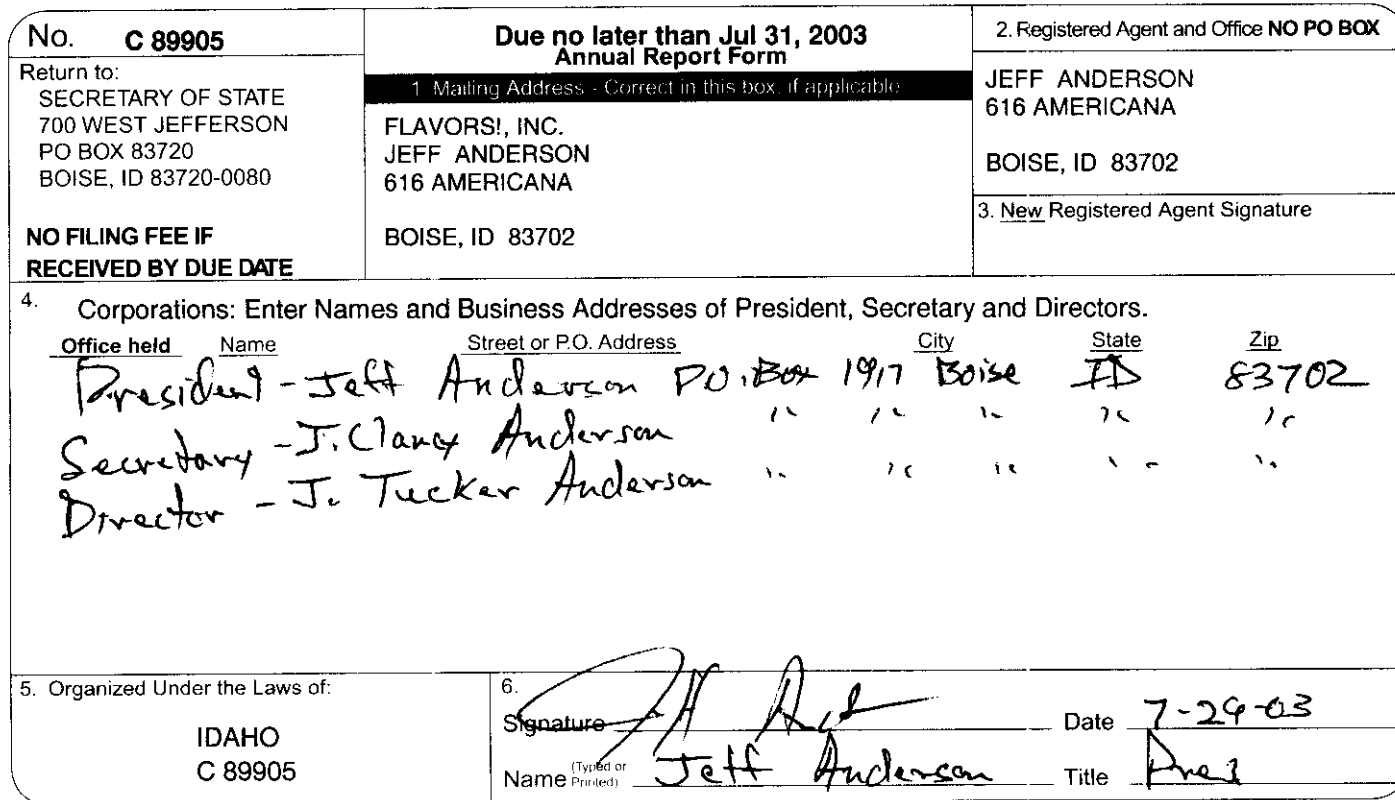 No. C 89905
Return to:
SECRETARY OF STATE
700 WEST JEFFERSON
PO BOX 83720
BOISE, ID 83720-0080
NO FILING FEE IF
RECEIVED BY DUE DATE
Due no later than Jul 31, 2003
Annual Report Form
1. Mailing Address - Correct in this box, if applicable
FLAVORS!, INC.
JEFF ANDERSON
616 AMERICANA
BOISE, ID 83702
2. Registered Agent and Office NO PO BOX
JEFF ANDERSON
616 AMERICANA
BOISE, ID 83702
3. New Registered Agent Signature
4. Corporations: Enter Names and Business Addresses of President, Secretary and Directors.
Office held Name Street or P.O. Address City State Zip
President - Jeff Anderson P.O. Box 1917 Boise ID 83702
Secretary - J. Clancy Anderson " " " " "
Director - J. Tucker Anderson " " " " "
5. Organized Under the Laws of:
IDAHO
C 89905
6.
Signature Date 7-29-03
Name (Typed or Printed) Jeff Anderson Title Pres